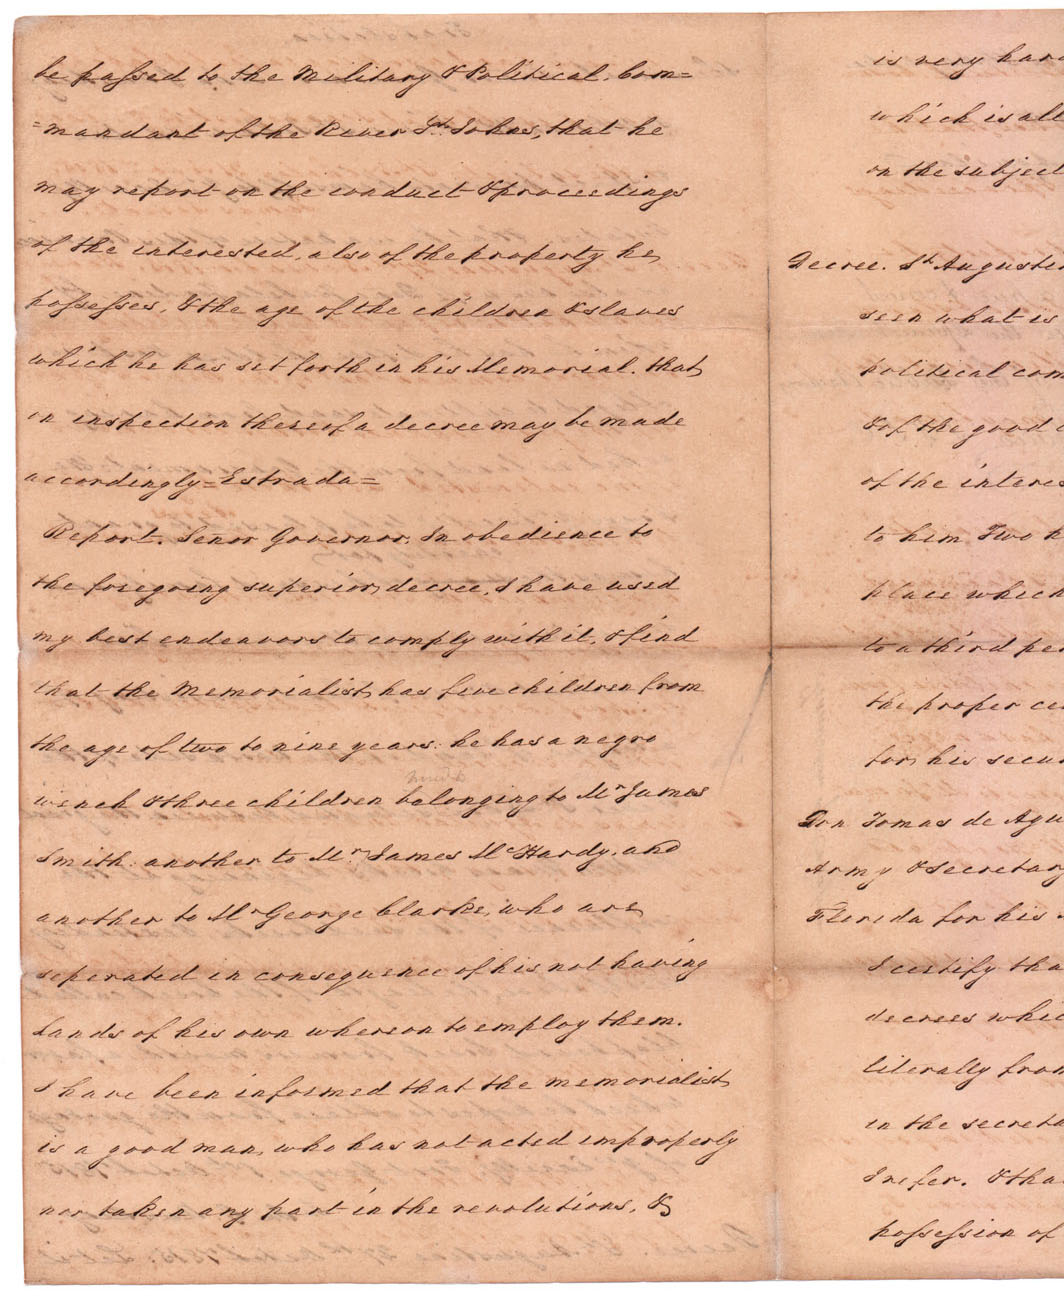 be passed to the Military & Political, Com=
=mandant of the River St. Johns, that he
may report on the conduct & proceedings
of the interested, also of the property he
possesses, & the age of the children & slaves
which he has set forth in his Memorial. that
on inspection thereof a decree may be made
accordingly = Estrada =
Report. Senor Governor. In obedience to
the foregoing superior decree, I have used
my best endeavors to comply with it, & find
that the Memorialist has five children from
the age of two to nine years: he has a negro
wench & three children belonging to Mr James
Smith. another to Mr. James McHardy, and
another to Mr George Clarke, who are
seperated in consequence of his not having
lands of his own whereon to employ them.
I have been informed that the memorialist
is a good man, who has not acted improperly
nor taken any part in the revolutions, &
is very hard
which is all
on the subject
Decree. St Augustin
seen what is
political com
& of the good
of the interes
to him Two h
place which
to a third per
the proper ce
for his secu
Don Tomas de Agu
Army & secretary
Florida for his
I certify tha
decrees whic
literally from
in the secreta
I refer. & tha
possession of